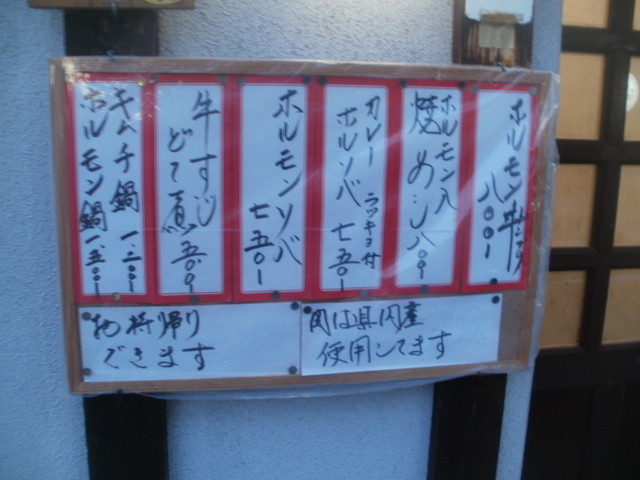 ホルモン
八〇〇
ホルモン入
焼めし八〇〇
カレー
ホルソバ
ラッキョ付
七五〇
ホルモンソバ
七五〇
牛すじ
どて煮五〇〇
キムチ鍋一、二〇〇
ホルモン鍋一、五〇〇
お持帰り
できます
肉は県内産
使用してます